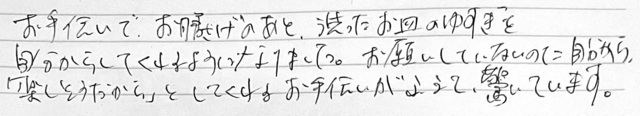 お手伝いで、お膳上げのあと、洗ったお皿のゆすぎを
自分からしてくれるようになりました。お願いしていないのに自分から、
「楽しそうだから」としてくれるお手伝いがふえて、驚いています。